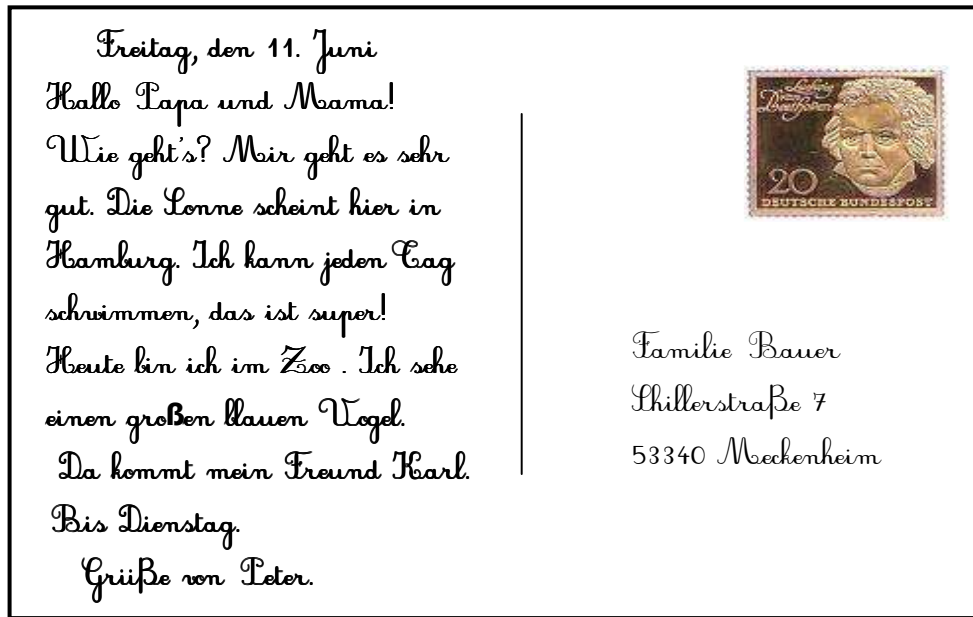 Freitag, den 11. Juni
Hallo Papa und Mama!
Wie geht's? Mir geht es sehr
gut. Die Sonne scheint hier in
Hamburg. Ich kann jeden Tag
schwimmen, das ist super!
Heute bin ich im Zoo . Ich sehe
einen großen blauen Vogel.
Da kommt mein Freund Karl.
Bis Dienstag.
Grüße von Peter.
Ludwig
van
Beethoven
20
DEUTSCHE BUNDESPOST
Familie Bauer
Shillerstraße 7
53340 Meckenheim